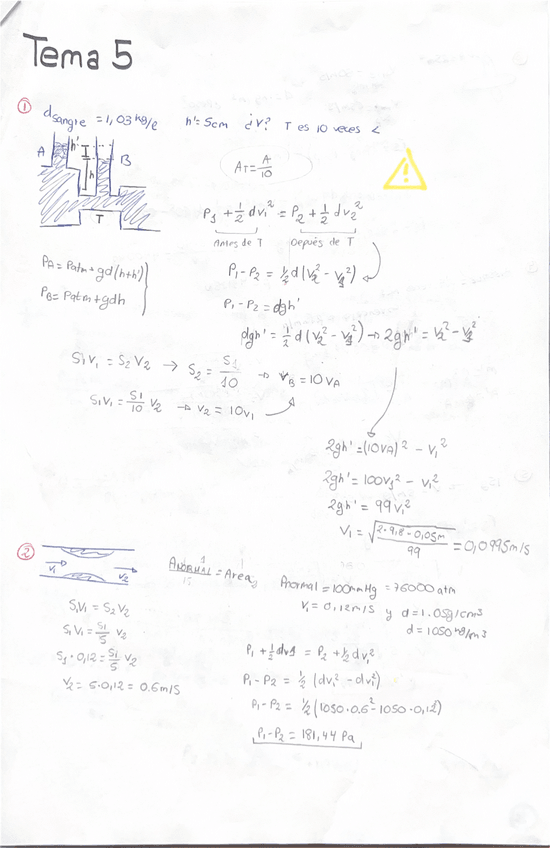 Tema 5
① dsangre = 1,03 kg/l h'= 5cm ¿V? T es 10 veces <
A h' B
h
T
AT = A/10
P1 + 1/2 dv1² = P2 + 1/2 dv2²
Antes de T Después de T
PA = Patm + gd(h+h')
PB = Patm + gdh
P1 - P2 = 1/2 d (V2² - V1²)
P1 - P2 = dgh'
dgh' = 1/2 d (V2² - V1²) → 2gh' = V2² - V1²
S1V1 = S2V2 → S2 = S1/10 → VB = 10VA
S1V1 = S1/10 V2 → V2 = 10V1
2gh' = (10VA)² - V1²
2gh' = 100V1² - V1²
2gh' = 99V1²
V1 = √(2·9,8-0,05m/99) = 0,0995m/s
② V1 V2
ANORMAL = Area
Anormal = 100mmHg = 76000 atm
V1 = 0,12m/s y d = 1.05g/cm3
d = 1050 kg/m3
S1V1 = S2V2
S1V1 = S1/5 V2
S1 · 0,12 = S1/5 V2
V2 = 5·0,12 = 0.6m/s
P1 + 1/2 dv1 = P2 + 1/2 dv2²
P1 - P2 = 1/2 (dv2² - dv1²)
P1 - P2 = 1/2 (1050·0.6² - 1050·0,12²)
P1 - P2 = 181,44 Pa